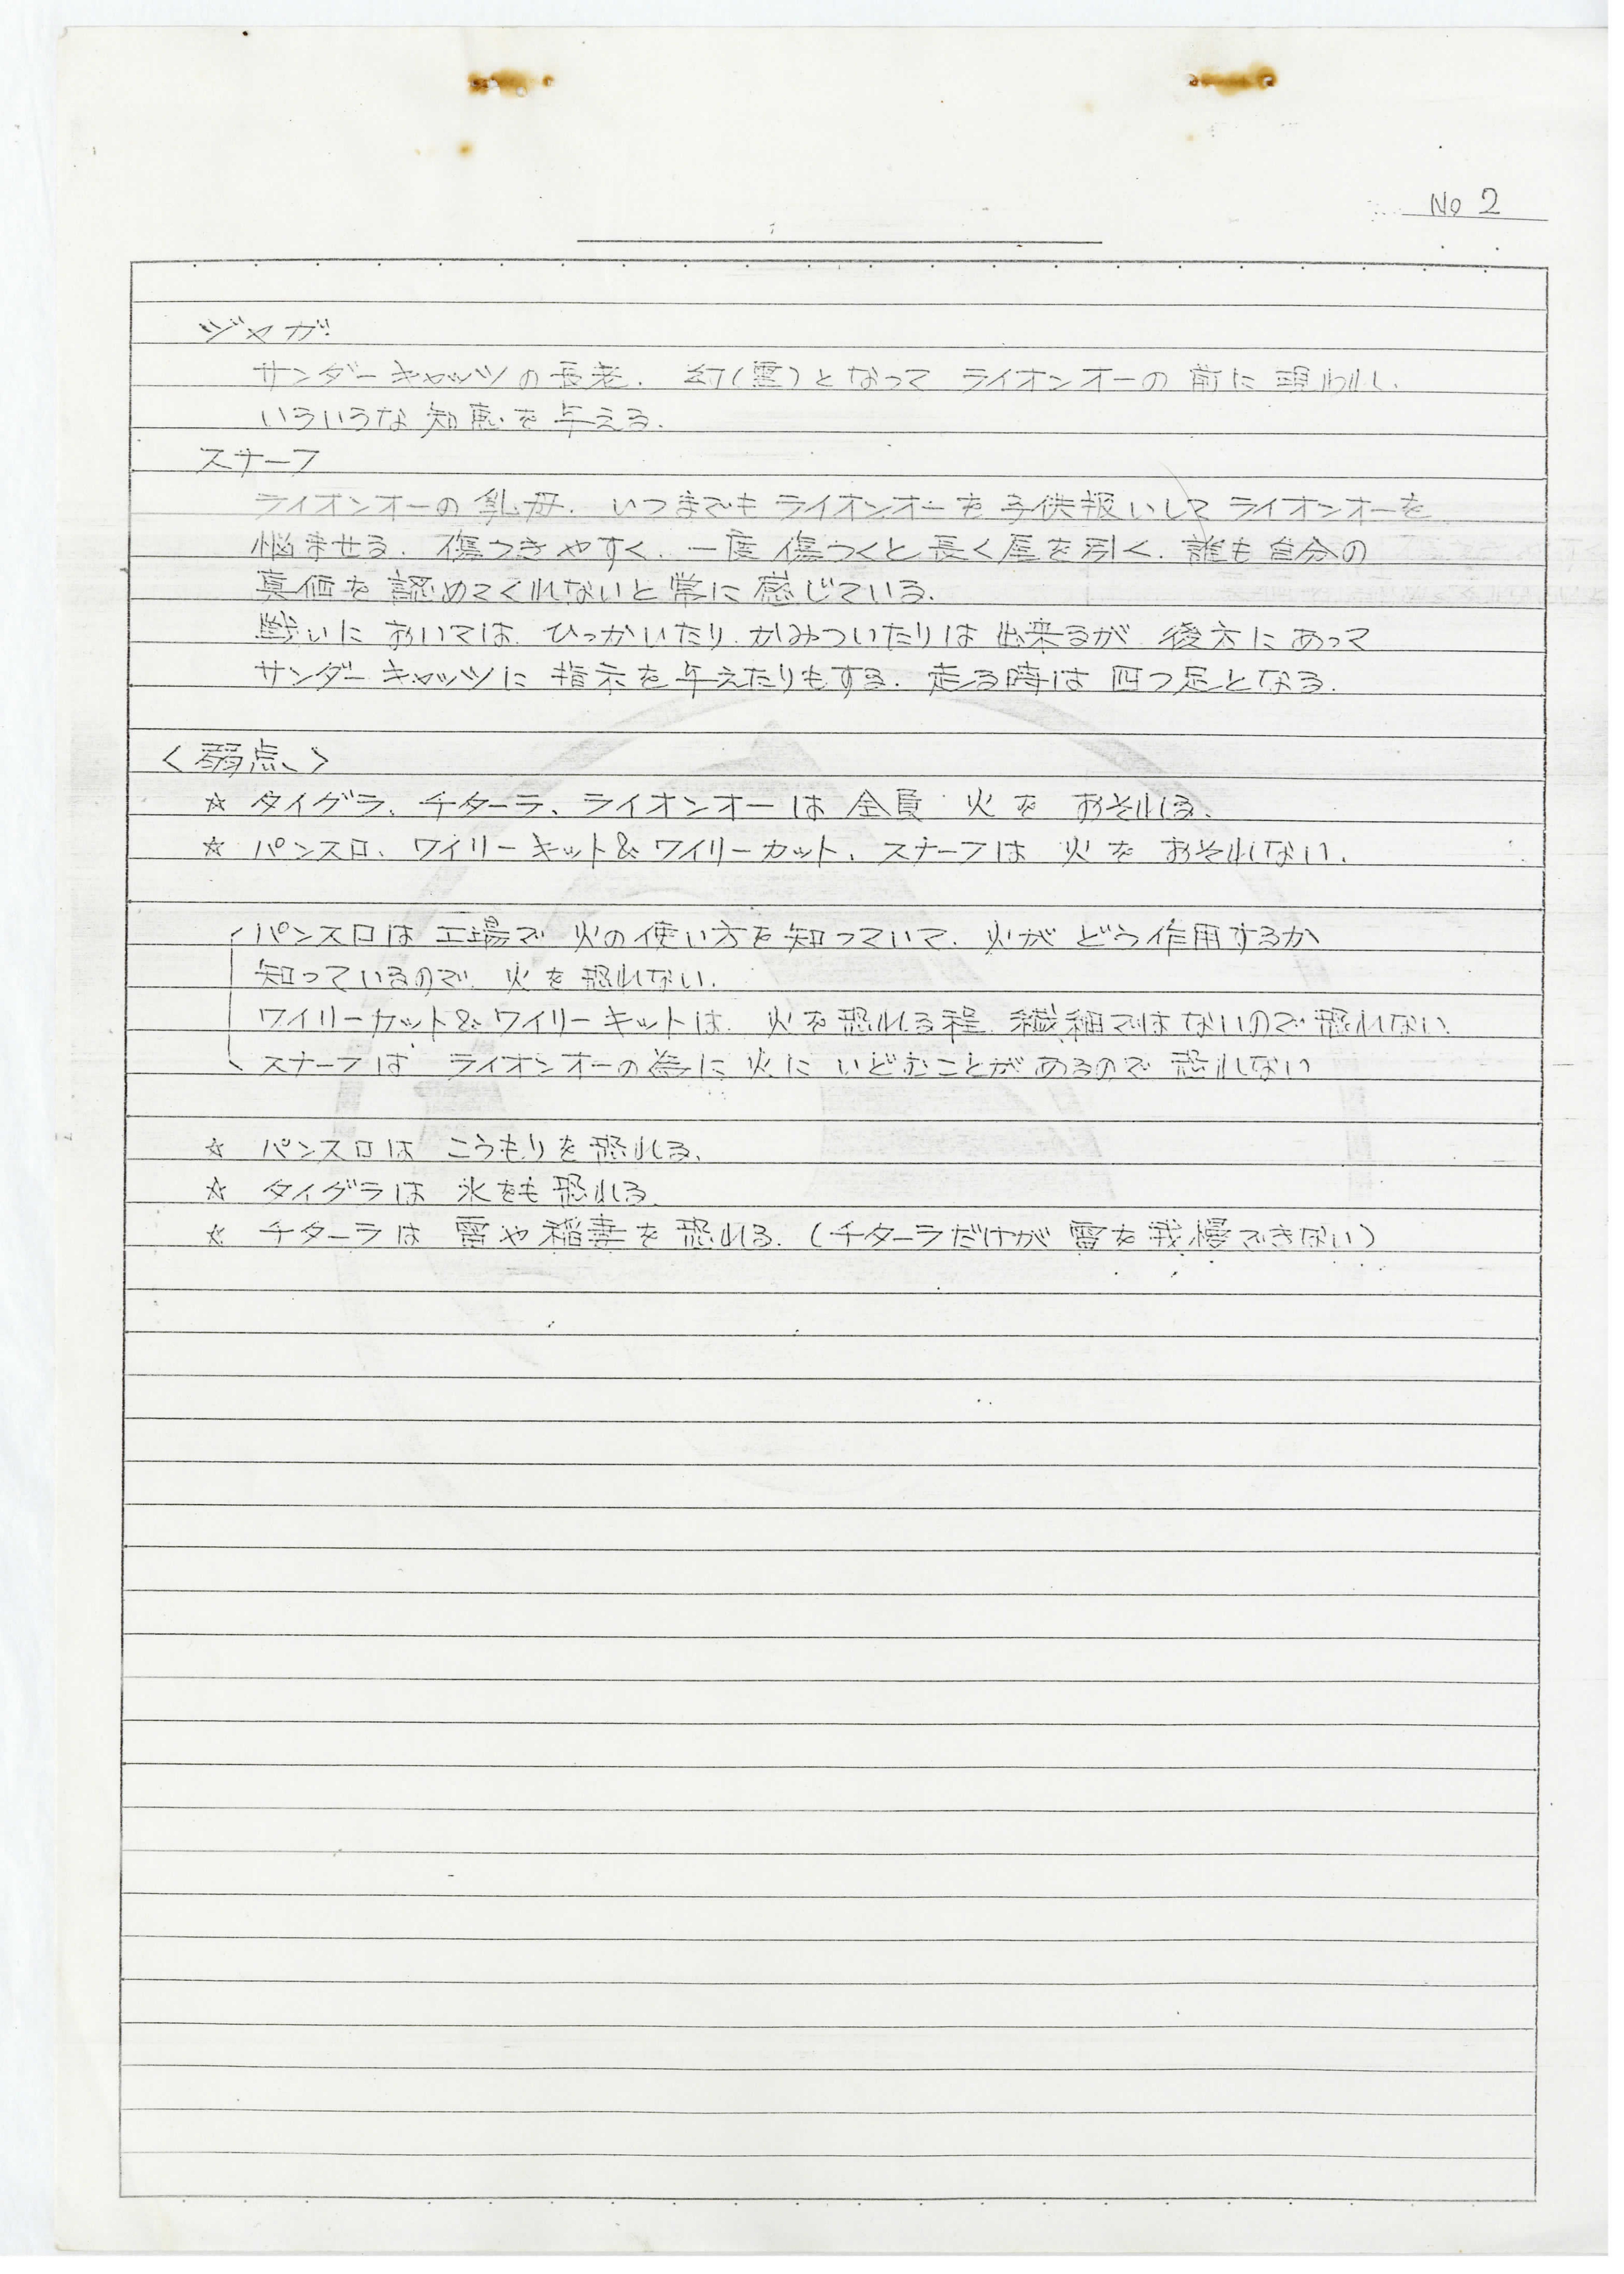 No 2
ジャガ
サンダーキャッツの長老. 幻(霊)となって ライオンオーの 前に 現われ.
いろいろな 知恵を 与える.
スナーフ
ライオンオーの 乳母. いつまでも ライオンオーを 子供扱いして ライオンオーを
悩ませる. 傷つきやすく. 一度 傷つくと 長く尾を引く. 誰も自分の
真価を 認めてくれないと 常に 感じている.
戦いに おいては. ひっかいたり.かみついたりは 出来るが 後方にあって
サンダーキャッツに 指示を 与えたりもする. 走る時は 四つ足となる.
〈弱点〉
☆ タイグラ、チターラ、ライオンオーは 全員 火を おそれる.
☆ パンスロ、ワイリーキット&ワイリーカット、スナーフは 火を おそれない.
パンスロは 工場で 火の使い方を 知っていて. 火が どう作用するか
知っているので. 火を 恐れない.
ワイリーカット&ワイリーキットは. 火を恐れる程. 繊細ではないので 恐れない.
スナーフは ライオンオーの為に 火に いどむことがあるので 恐れない
☆ パンスロは こうもりを 恐れる.
☆ タイグラは 氷をも 恐れる.
☆ チターラは 雷や稲妻を 恐れる. (チターラだけが 雷を 我慢できない)